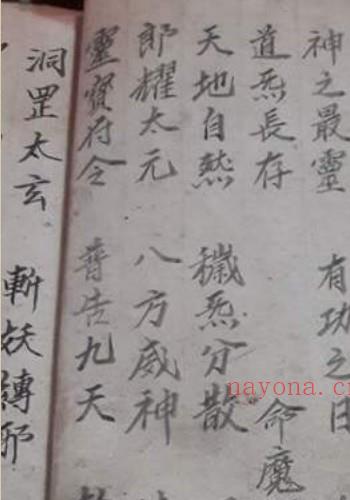 神之最靈 有功之日
道炁長存 命魔
天地自然 穢炁分散
郎耀太元 八方威神
靈寶府令 普告九天
洞罡太玄 斬妖縛邪
nayona.cn